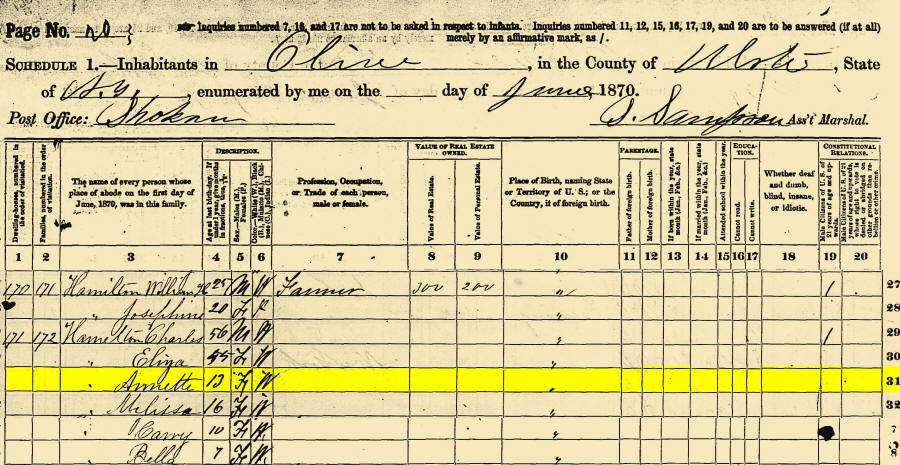 Page No. 20
Inquiries numbered 7, 16, and 17 are not to be asked in respect to infants. Inquiries numbered 11, 12, 15, 16, 17, 19, and 20 are to be answered (if at all)
merely by an affirmative mark, as /.
SCHEDULE 1.—Inhabitants in Olive, in the County of Ulster, State
of N.Y., enumerated by me on the day of June, 1870.
Post Office: Shokan
Sampson Ass't Marshal.
DESCRIPTION.
VALUE OF REAL ESTATE OWNED.
PARENTAGE.
EDUCATION.
CONSTITUTIONAL RELATIONS.
Dwelling-houses, numbered in the order of visitation.
Families, numbered in the order of visitation.
The name of every person whose place of abode on the first day of June, 1870, was in this family.
Age at last birth-day. If under 1 year, give months in fractions, thus,
Sex.—Males (M.), Females (F.)
Color.—White (W.), Black (B.), Mulatto (M.), Chinese (C.), Indian (I.)
Profession, Occupation, or Trade of each person, male or female.
Value of Real Estate.
Value of Personal Estate.
Place of Birth, naming State or Territory of U. S.; or the Country, if of foreign birth.
Father of foreign birth.
Mother of foreign birth.
If born within the year, state month (Jan., Feb., &c.)
If married within the year, state month (Jan., Feb., &c.)
Attended school within the year.
Cannot read.
Cannot write.
Whether deaf and dumb, blind, insane, or idiotic.
Male Citizens of U. S. of 21 years of age and upwards.
Male Citizens of U. S. of 21 years of age and upwards, whose right to vote is denied or abridged on other grounds than rebellion or other crime.
1 2 3 4 5 6 7 8 9 10 11 12 13 14 15 16 17 18 19 20
170 171 Hamilton William H 25 M W Farmer 300 200 " / 27
" Josephine 20 F " 28
171 172 Hamilton Charles 56 M W " / 29
" Eliza 45 F W " 30
" Annette 13 F W " 31
" Melissa 16 F W " 32
" Carry 10 F W "
" Bella 7 F W "